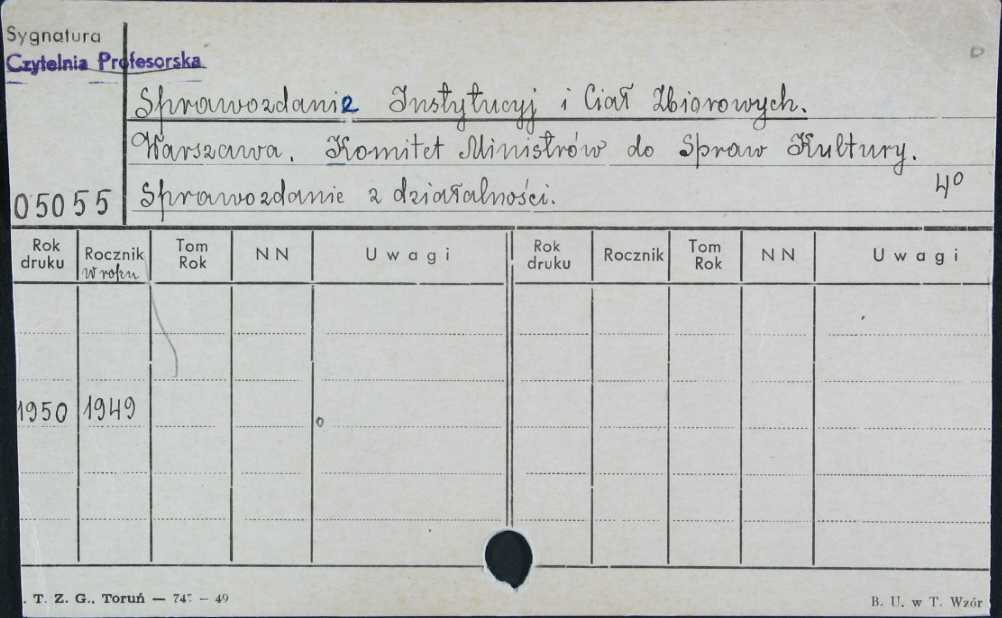 Sygnatura
Czytelnia Profesorska
Sprawozdanie Instytucyj i Ciał Zbiorowych.
Warszawa. Komitet Ministrów do Spraw Kultury.
Sprawozdanie z działalności. 4°
05055
Rok druku Rocznik W roku Tom Rok NN Uwagi Rok druku Rocznik Tom Rok NN Uwagi
1950 1949
T. Z. G., Toruń — 747 — 49 B. U. w T. Wzór